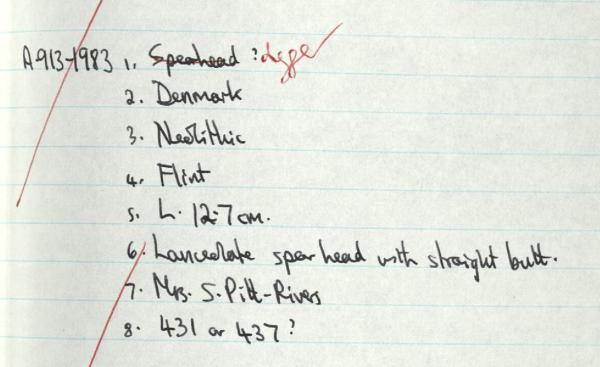 A913-1983 1. Spearhead ?
2. Denmark
3. Neolithic
4. Flint
5. L. 12.7 cm.
6. Lanceolate spearhead with straight butt.
7. Mrs. S. Pitt-Rivers
8. 431 or 437?